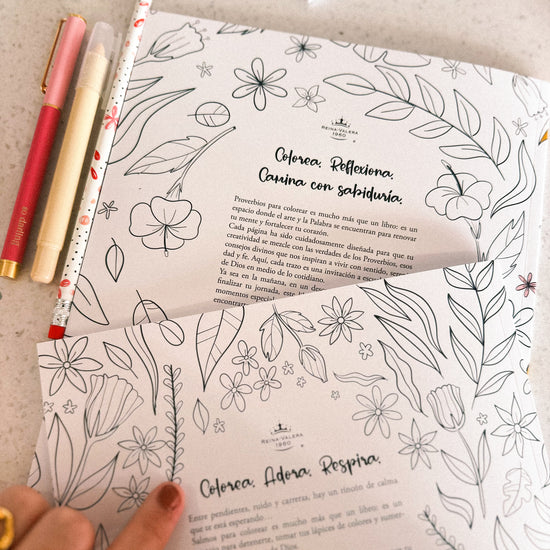 so darling
REINA-VALERA
1960
Colorea. Reflexiona.
Camina con sabiduría.
Proverbios para colorear es mucho más que un libro: es un
espacio donde el arte y la Palabra se encuentran para renovar
tu mente y fortalecer tu corazón.
Cada página ha sido cuidadosamente diseñada para que tu
creatividad se mezcle con las verdades de los Proverbios, esos
consejos divinos que nos inspiran a vivir con sentido,
dad y fe. Aquí, cada trazo es una invitación a
de Dios en medio de lo cotidiano.
Ya sea en la mañana, en un
finalizar tu jornada, este
momentos especial
encontran
REINA-VALERA
1960
Colorea. Adora. Respira.
Entre pendientes, ruido y carreras, hay un rincón de calma
que te está esperando...
Salmos para colorear es mucho más que un libro: es un
para detenerte, tomar tus lápices de colores y
de Dios.